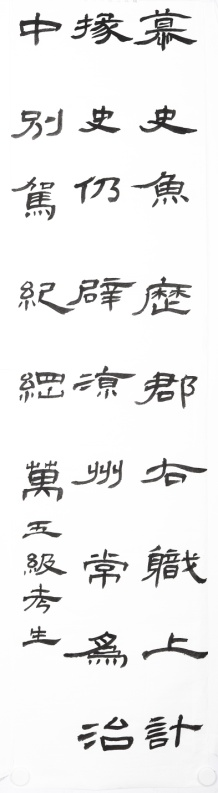 慕史魚歷郡右職上計
掾史仍辟涼州常爲治
中別駕紀綱萬
五級考生